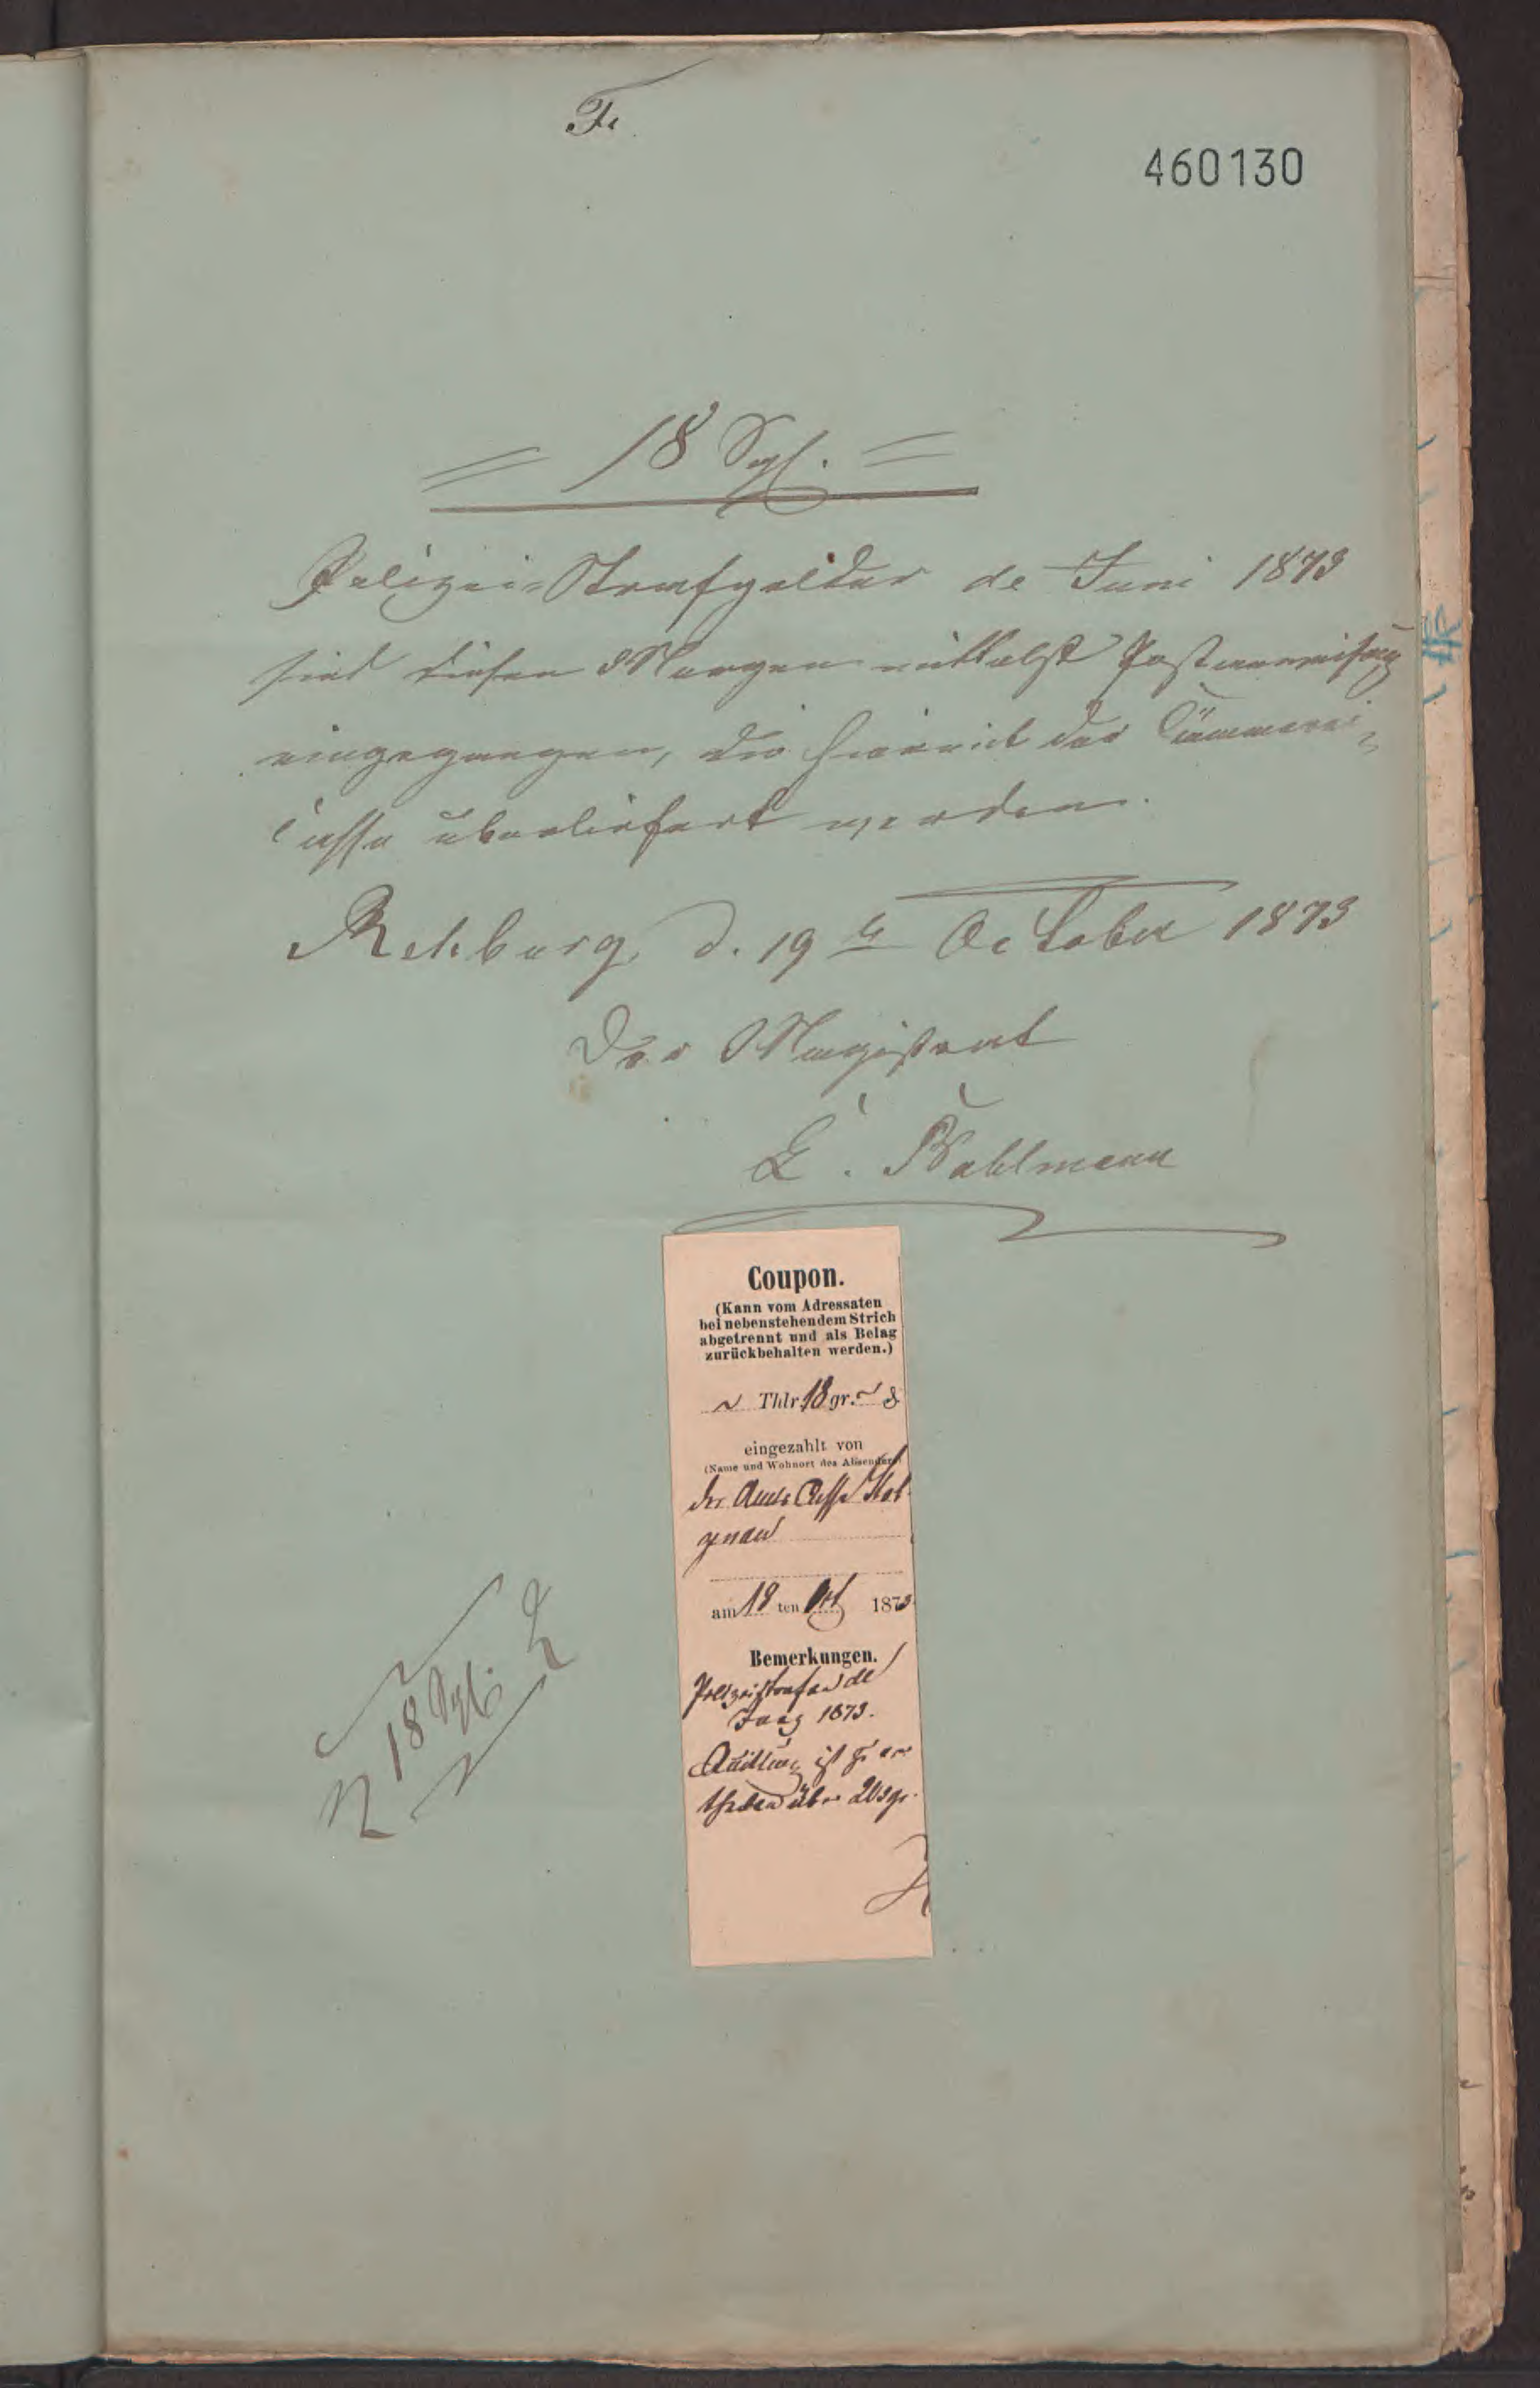 F.
460130
= 18 Sgl. =
Polizei-Strafgelder de Juni 1873
sind diesen Morgen mittelst Postanweisung
eingegangen, die hiermit der Cämmerei-
Casse überliefert werden.
Rehburg, d. 19ten October 1873
Der Magistrat
E. Bahlmann
Coupon.
(Kann vom Adressaten
bei nebenstehendem Strich
abgetrennt und als Belag
zurückbehalten werden.)
Thlr 18 gr.
eingezahlt von
(Name und Wohnort des Absenders)
der Amts Casse Stol-
zenau
am 18 ten Oct 1873
Bemerkungen.
Polizeistrafen de
1873.
Quittung ist zu er-
theilen über 20 sgr.
18 Sgl.